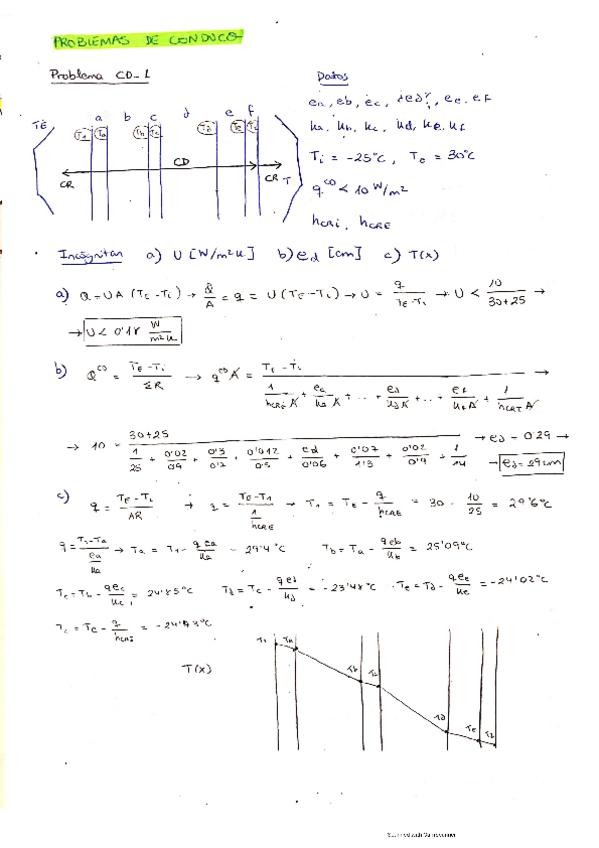 PROBLEMAS DE CONDUCO
Problema CD-1
Datos
a b c d e f
TE T1 Ta Tb Tc Td Te Ti
CR CD CR T
ea, eb, ec, ¿ed?, ee, ef
ka, kb, kc, kd, ke, kf
Ti = -25°C, Te = 30°C
q^CD < 10 W/m²
hCRi, hCRE
Incógnitas a) U [W/m²K] b) ed [cm] c) T(x)
a) Q = UA (TE - Ti) → Q/A = q = U (TE - Ti) → U = q/(TE - Ti) → U < 10/(30+25) →
→ U < 0'18 W/m²K
b) Q^CD = (TE - Ti)/ΣR → q^CD A = (TE - Ti)/(1/(hCRE A) + ea/(ka A) + ... + ed/(kd A) + ... + ef/(kf A) + 1/(hCRI A)) →
→ 10 = (30+25)/(1/25 + 0'02/0'9 + 0'3/0'7 + 0'012/0'5 + ed/0'06 + 0'07/1'3 + 0'02/0'9 + 1/14) → ed = 0'29 →
→ ed = 29 cm
c) q = (TE - Ti)/AR → q = (TE - T1)/(1/hCRE) → T1 = TE - q/hCRE = 30 - 10/25 = 29'6°C
q = (T1 - Ta)/(ea/ka) → Ta = T1 - q ea/ka = 29'4°C Tb = Ta - q eb/kb = 25'09°C
Tc = Tb - q ec/kc = 24'85°C Td = Tc - q ed/kd = -23'48°C Te = Td - q ee/ke = -24'02°C
q/hCRI
T(x)
T1 Ta Tb Tc Td Te